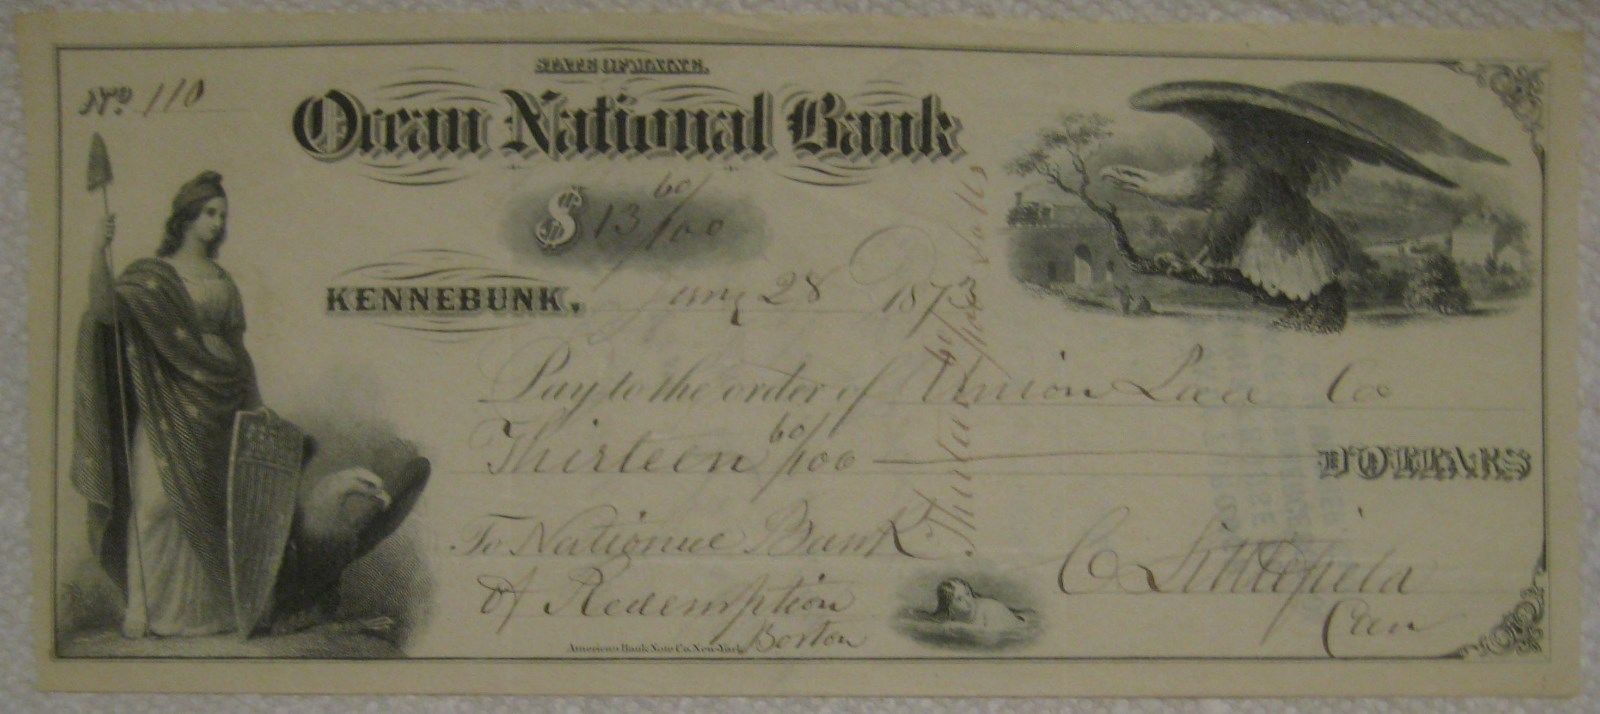 STATE OF MAINE.
No 110
Ocean National Bank
$ 13 60/100
KENNEBUNK, 28 1873
Pay to the order of Union Co
Thirteen 60/100 DOLLARS
To National Bank
of Redemption
Boston
C Littlefield
Cas
American Bank Note Co. New-York
Thirteen 60/100